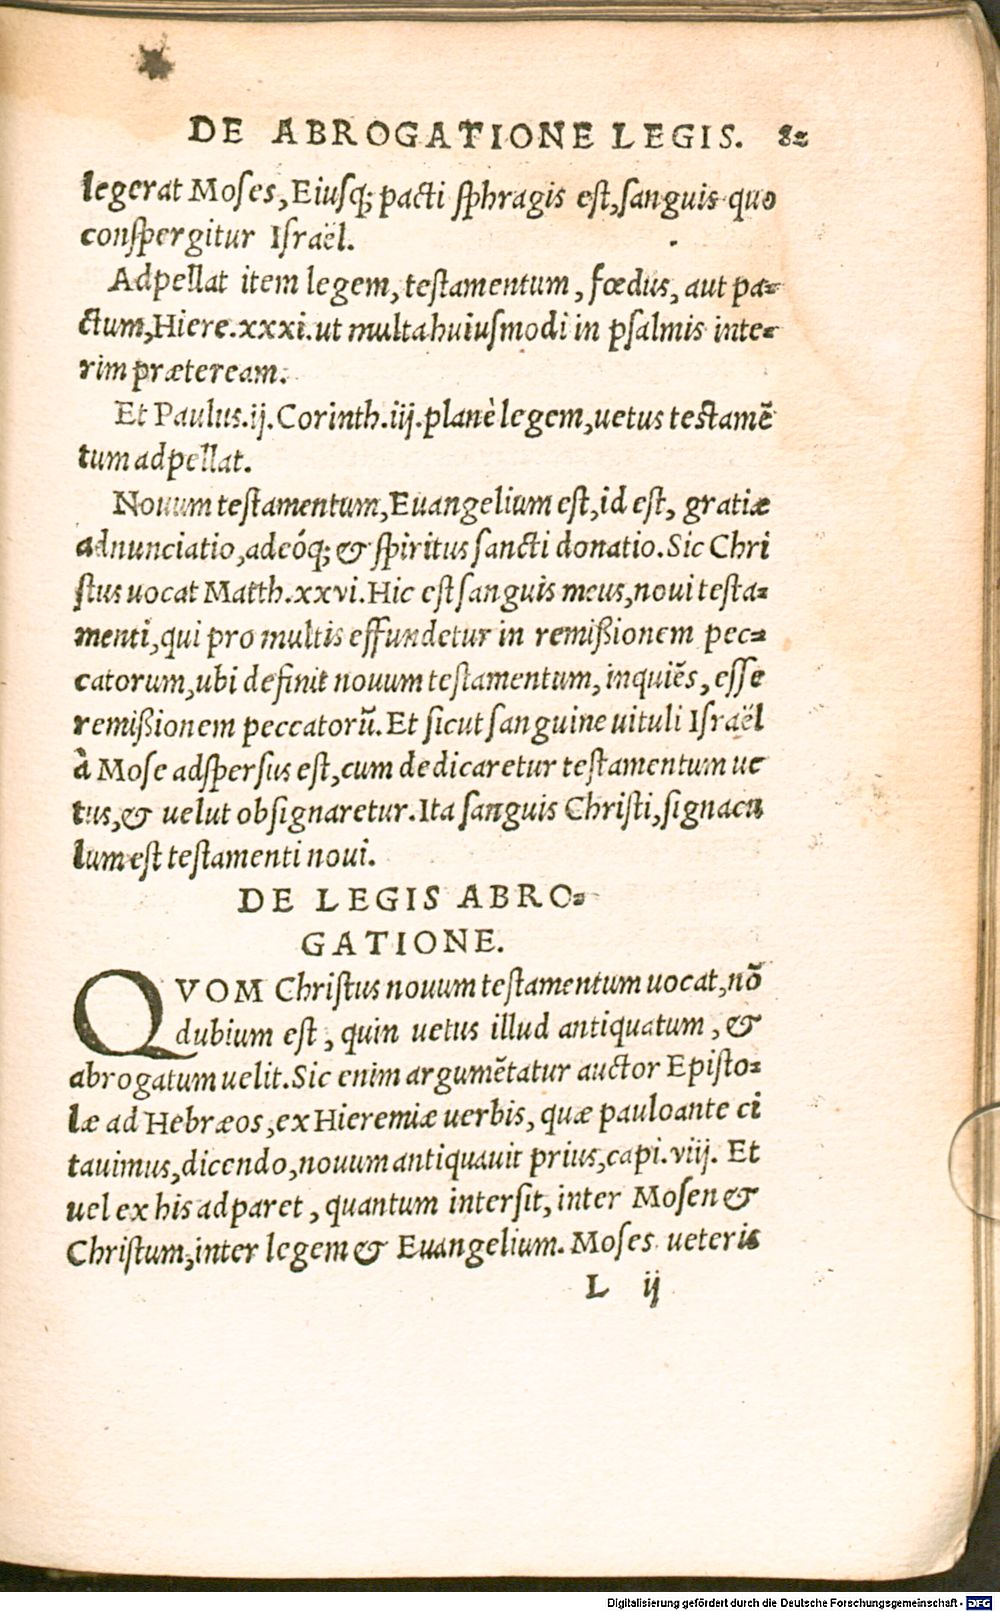 DE ABROGATIONE LEGIS. 82
legerat Moses, Eiusq; pacti sphragis est, sanguis quo
conspergitur Israël.
Adpellat item legem, testamentum, fœdus, aut pa⸗
ctum, Hiere.xxxi. ut multa huiusmodi in psalmis inte⸗
rim præteream.
Et Paulus.ij.Corinth.iij.planè legem, uetus testamē
tum adpellat.
Nouum testamentum, Euangelium est, id est, gratiæ
adnunciatio, adeóq; & spiritus sancti donatio. Sic Chri
stus uocat Matth.xxvi. Hic est sanguis meus, noui testa⸗
menti, qui pro multis effundetur in remißionem pec⸗
catorum, ubi definit nouum testamentum, inquiēs, esse
remißionem peccatorū. Et sicut sanguine uituli Israël
à Mose adspersus est, cum dedicaretur testamentum ue
tus, & uelut obsignaretur. Ita sanguis Christi, signacu
lum est testamenti noui.
DE LEGIS ABRO⸗
GATIONE.
QVOM Christus nouum testamentum uocat, nō
dubium est, quin uetus illud antiquatum, &
abrogatum uelit. Sic enim argumētatur auctor Episto⸗
læ ad Hebræos, ex Hieremiæ uerbis, quæ pauloante ci
tauimus, dicendo, nouum antiquauit prius, capi.viij. Et
uel ex his adparet, quantum intersit, inter Mosen &
Christum, inter legem & Euangelium. Moses ueteris
L ij
Digitalisierung gefördert durch die Deutsche Forschungsgemeinschaft - DFG